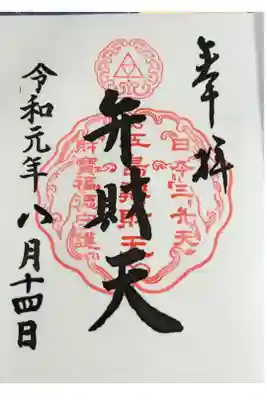 奉拝
日本三弁天
弁財天
財寶福徳守護
令和元年八月十四日